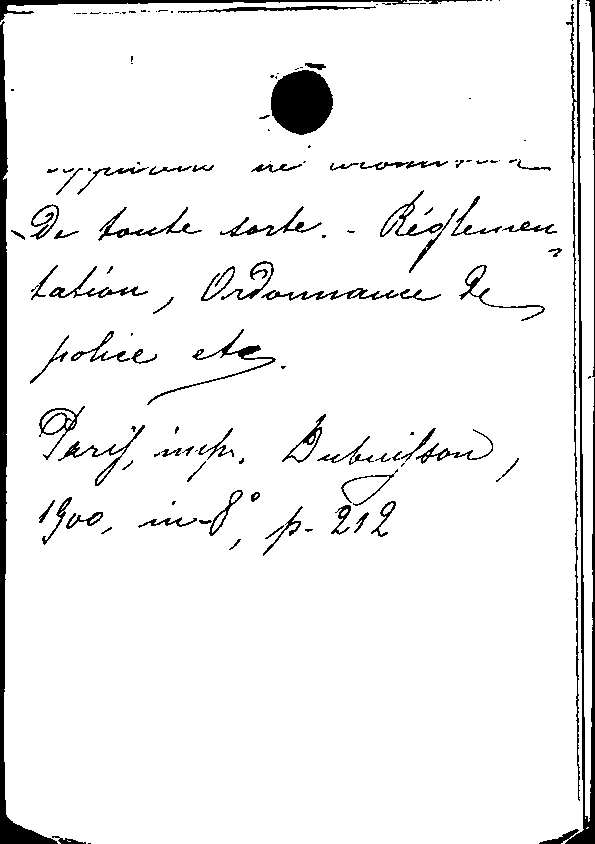 De toute sorte. - Réglemen-
tation, Ordonnance de
police etc.
Paris, impr. Dubuisson,
1900, in-8°, p. 212